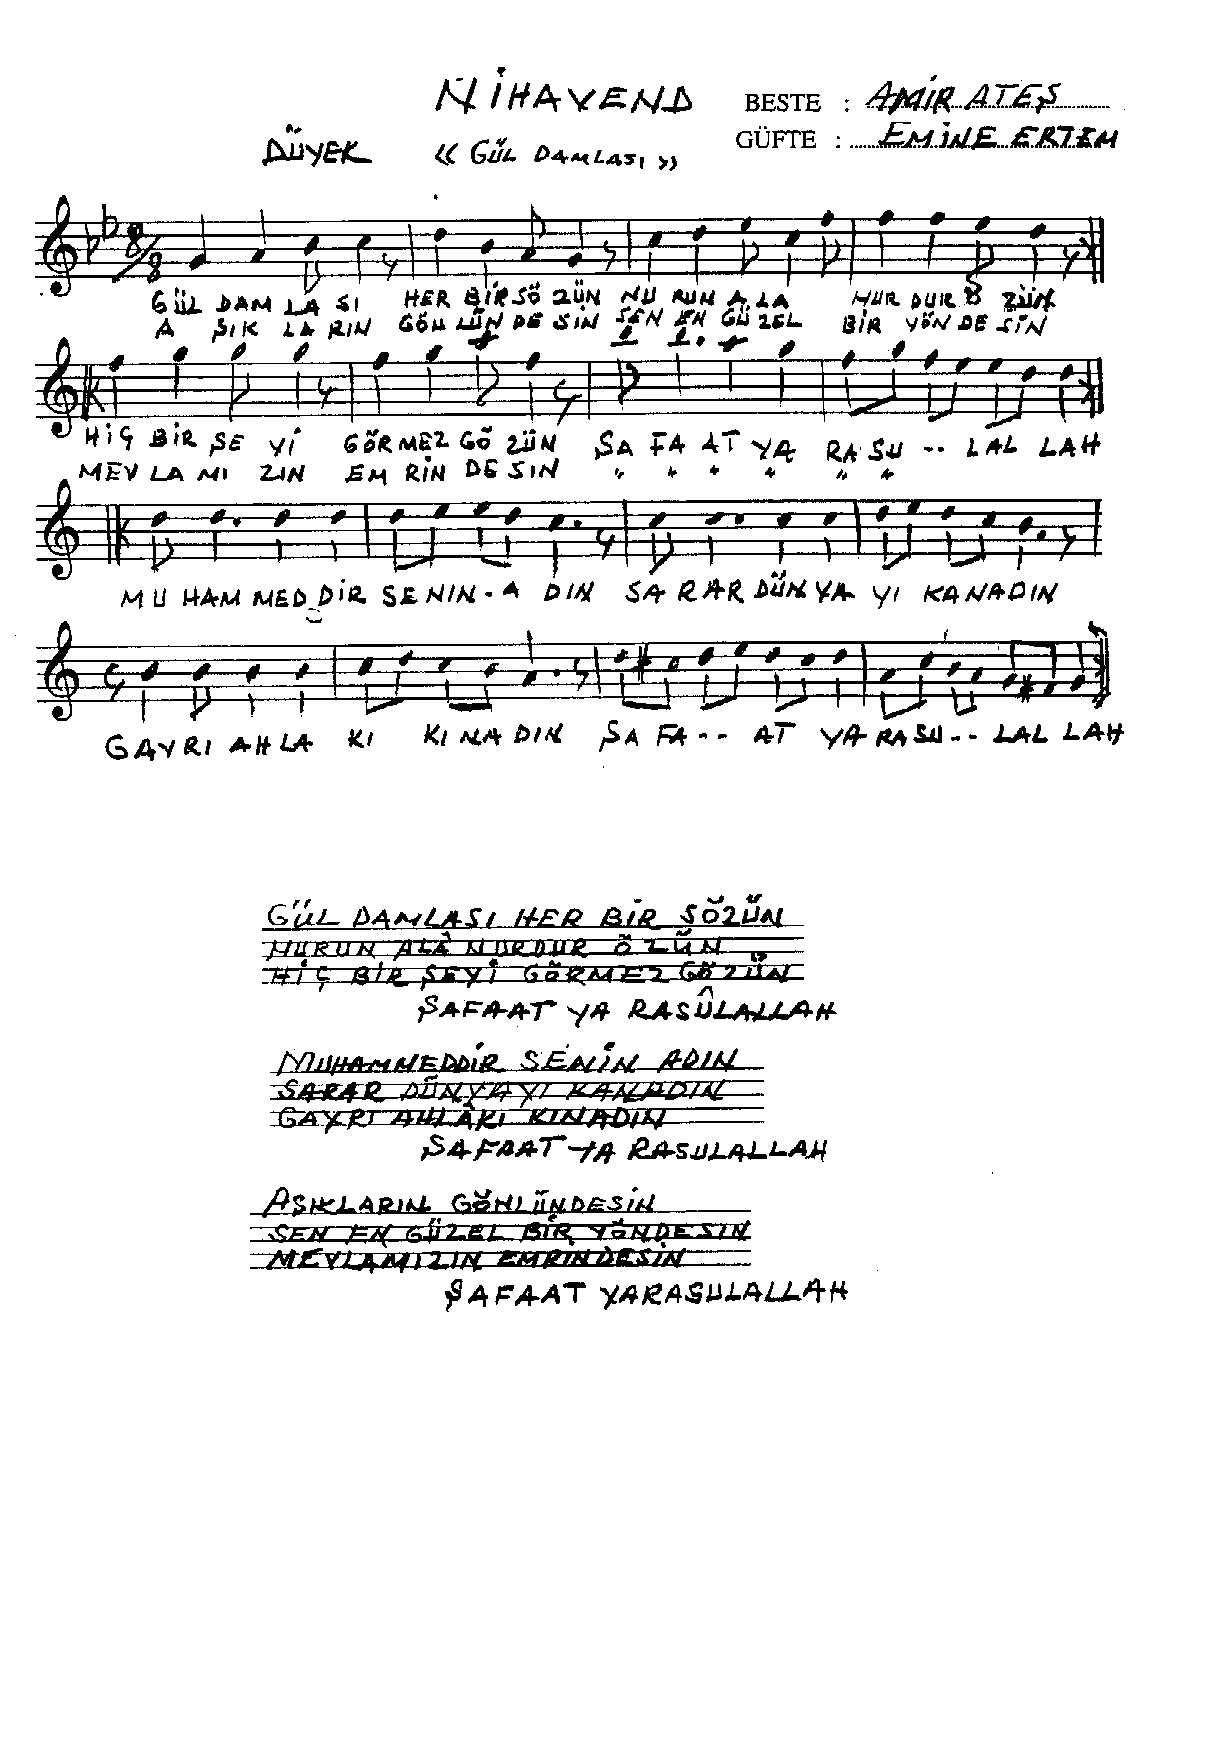 NİHAVEND
BESTE : AMİR ATEŞ
GÜFTE : EMİNE ERTEM
DÜYEK
« GÜL DAMLASI »
8/8
GÜL DAM LA SI HER BİR SÖ ZÜN NU RUN A LA NUR DUR Ö ZÜN
A ŞIK LA RIN GÖN LÜN DE SİN SEN EN GÜ ZEL BİR YÖN DE SİN
HİÇ BİR ŞE Yİ GÖR MEZ GÖ ZÜN ŞA FA AT YA RA SU -- LAL LAH
MEV LA MI ZIN EM RİN DE SİN " " " " " "
MU HAM MED DİR SE NIN - A DIN SA RAR DÜN YA YI KANADIN
GAYRI AHLA KI KINADIN ŞA FA -- AT YA RA SU -- LAL LAH
GÜL DAMLASI HER BİR SÖZÜN
NURUN ALÂ NURDUR ÖZÜN
HİÇ BİR ŞEYİ GÖRMEZ GÖZÜN
ŞAFAAT YA RASÛLALLAH
MUHAMMEDDİR SENİN ADIN
SARAR DÜNYAYI KANADIN
GAYRI AHLÂKI KINADIN
ŞAFAAT YA RASULALLAH
AŞIKLARIN GÖNLÜNDESİN
SEN EN GÜZEL BİR YÖNDESIN
MEVLAMIZIN EMRİNDESİN
ŞAFAAT YARASULALLAH